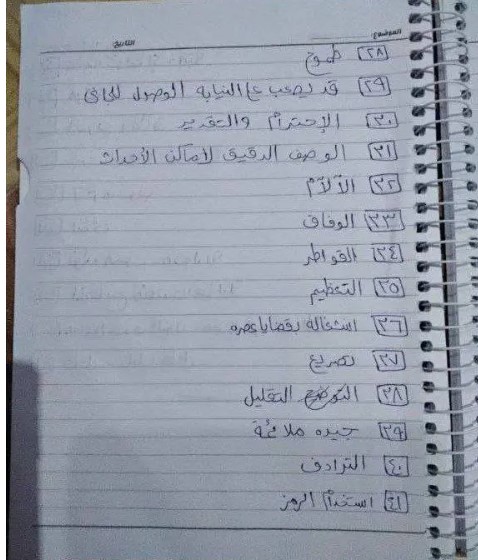 الموضوع
التاريخ
٢٨ طموح
٢٩ قد يصعب على النيابة الوصول للجانى
٣٠ الإحترام والتقدير
٣١ الوصف الدقيق لأماكن الأحداث
٣٢ الآلام
٣٣ الوفاق
٣٤ القواطر
٣٥ التعظيم
٣٦ استغاله بقضايا عصره
٣٧ تصريع
٣٨ التقليل
٣٩ جيده ملائمة
٤٠ الترادف
٤١ استخدام الرمز